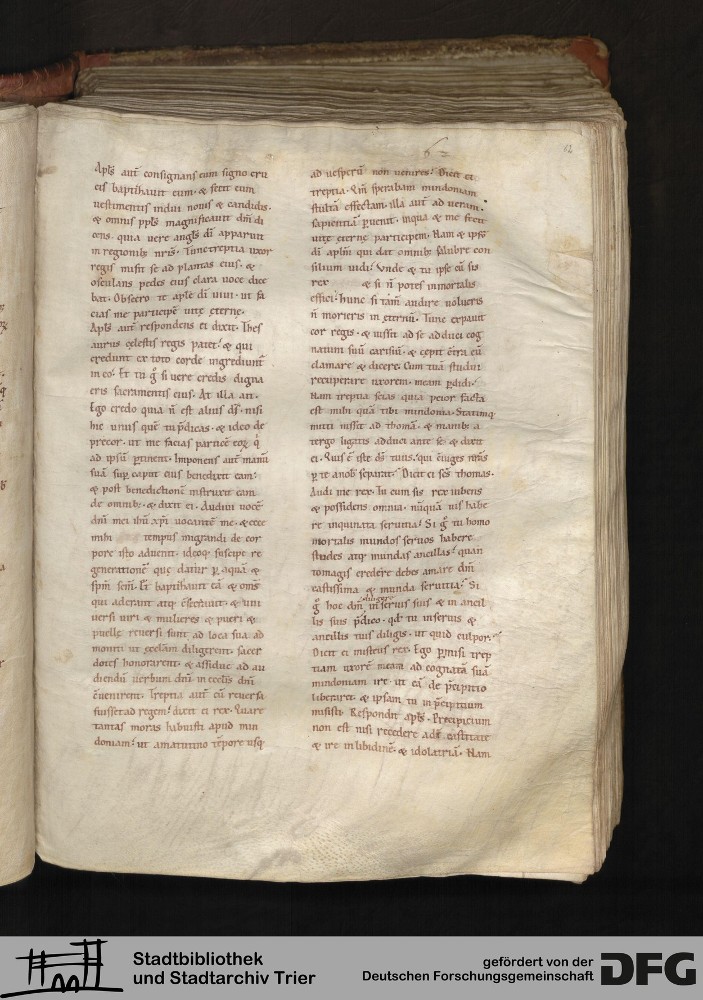 62
Apls aut consignans eum signo cru
cis baptizauit eum. & fecit eum
uestimentis indui nouis & candidis.
& omnis ppls magnificauit dm di
cens. quia uere angls di apparuit
in regionib; nris. Tunc treptia uxor
regis misit se ad plantas eius. &
osculans pedes eius clara uoce dice
bat. Obsecro te aple di uiui. ut fa
cias me participe uite eterne.
Apls aut respondens ei dixit. Thes
aurus celestis regis patet. & qui
credunt ex toto corde ingrediunt
in eo. Et tu g si uere credis digna
eris sacramentis eius. At illa ait.
Ego credo quia n est alius ds. nisi
hic unus que tu pdicas. & ideo de
precor. ut me facias partice eoz q
ad ipsu ptinent. Imponens aut manu
sua sup caput eius benedixit eam.
& post benedictione instruxit eam
de omnib; & dixit ei. Audiui uoce
dni mei ihu xpi uocante me. & ecce
mihi tempus migrandi de cor
pore isto aduenit. ideoq; suscipe re
generatione que datur p aqua &
spm scm. Et baptizauit ea & oms
qui aderant atq; csecrauit. & uni
uersi uiri & mulieres & pueri &
puelle reuersi sunt ad loca sua. ad
moniti ut ecclam diligerent. sacer
dotes honorarent. & assidue ad au
diendu uerbum dni in ecclis dni
cuenirent. Treptia aut cu reuersa
fuisset ad regem. dixit ei rex. Quare
tantas moras habuisti apud min
doniam. ut amatutino tepore usq
ad uesperu non uenires. Dicit ei
treptia. Qm sperabam mindoniam
stulta effectam. illa aut ad ueram
sapientiam puenit. inqua & me fecit
uite eterne participem. Nam & ipse
di aplm qui dat omnib; salubre con
silium uidi. Vnde & tu ipse cu sis
rex & si n potes inmortalis
effici. hunc si tam audire uolueris
n morieris in eternu. Tunc expauit
cor regis. & iussit ad se adduci cog
natum suu carisiu. & cepit ctra eu
clamare & dicere. Cum tua studui
recuperare uxorem. meam pdidi.
Nam treptia scias quia peior facta
est mihi qua tibi mindonia. Statimq
mitti iussit ad thoma. & manib; a
tergo ligatis adduci ante se & dixit
ei. Quis e iste ds tuus. qui ciuges nras
p te anob separat. Dicit ei scs thomas.
Audi me rex. Tu cum sis rex iubens
& possidens omnia. nuqua uis habe
re inquinata seruitia. Si g tu homo
mortalis mundos seruos habere
studes atq; mundas ancillas. quan
tomagis credere debes amare dm
castissima & munda seruitia. Si
g hoc dm diligere in seruis suis & in ancil
lis suis pdico. qd tu in seruis &
ancillis tuis diligis. ut quid culpor.
Dicit ei misteus rex. Ego pmisi trep
tiam uxore meam ad cognata sua
mindoniam ire. ut ea de pcipitio
liberaret. & ipsam tu in pcipitium
misisti. Respondit apls. Precipitium
non est nisi recedere ad castitate
& ire in libidine. & idolatria. Nam
Stadtbibliothek
und Stadtarchiv Trier
gefördert von der
Deutschen Forschungsgemeinschaft
DFG